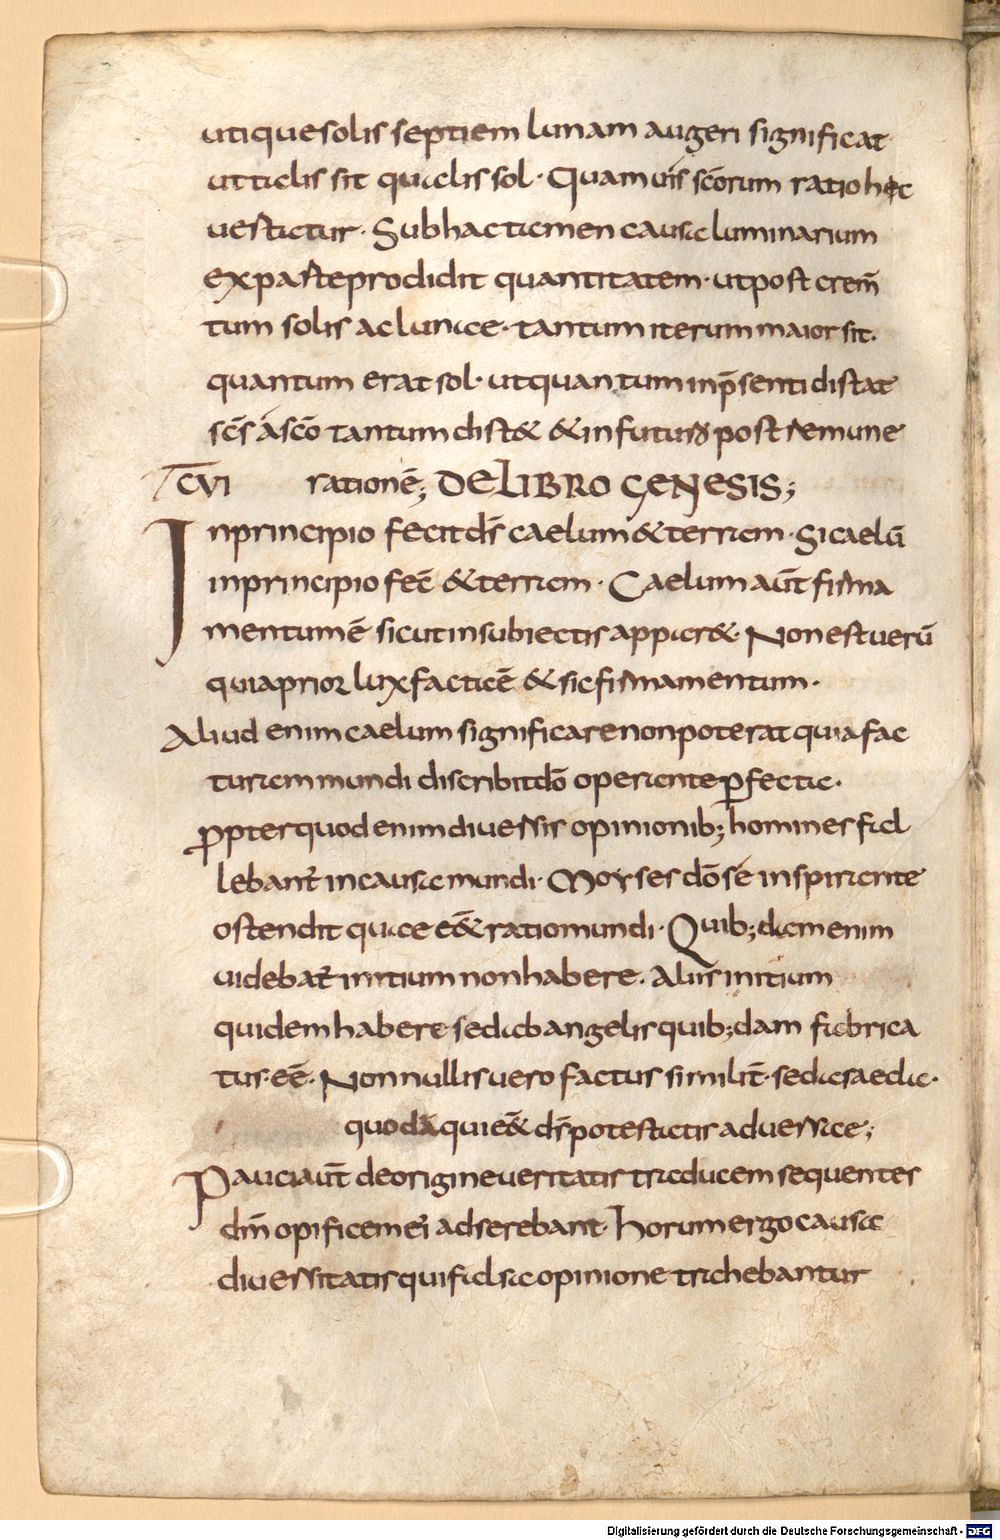 utique solis septiem lunam augeri significat
ut talis sit qualis sol· Quamuis sc̄orum ratio hec
uestatur· Sub hac tamen causa luminarium
ex parte prodidit quantitatem· ut post crem̄
tum solis ac lunae· tantum iterum maior sit·
quantum erat sol· ut quantum in p̄senti distat
sc̄s a sc̄o tantum dist& & in futuro post remune
CVI rationē; DE LIBRO GENESIS;
In principio fecit ds̄ caelum & terram· Si caelū
in principio fec̄ & terram· Caelum aut̄ firma
mentum ē sicut in subiectis appar&· Non est uerū
quia prior lux facta ē & sic firmamentum·
Aliud enim caelum significare non poterat quia fac
turam mundi discribit dō operante perfecta·
propter quod enim diuersis opinionib; homines fal
lebant̄ in causa mundi· Moyses dō se inspirante
ostendit quae e&̄ ratio mundi· Quib;dam enim
uidebat̄ initium non habere· aliis initium
quidem habere sed ab angelis quib;dam fabrica
tus· eē· Non nullis uero factus similit̄· sed a saeda·
quodā qui e&̄ dī potestatis aduersae;
Pauci aut̄ de origine ueritatis traducem sequentes
dm̄ opificem ei adserebant· horum ergo causa
diuersitatis qui falsa opinione trahebantur
Digitalisierung gefördert durch die Deutsche Forschungsgemeinschaft - DFG